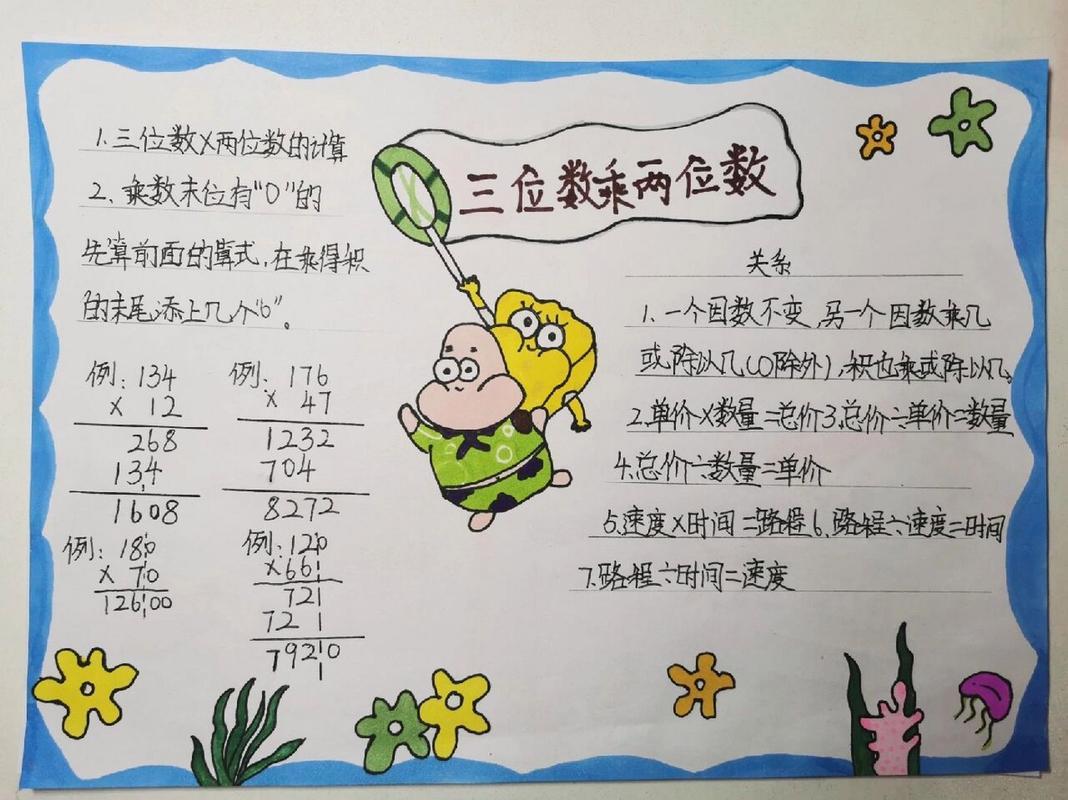 三位数乘两位数
1.三位数×两位数的计算
2、乘数末位有"0"的
先算前面的算式，在乘得积
的末尾添上几个"0"。
例：134
× 12
268
134
1608
例：176
× 47
1232
704
8272
例：180
× 70
12600
例：120
×66
72
72
7920
关系
1.一个因数不变，另一个因数乘几
或除以几（0除外），积也乘或除以几。
2.单价×数量=总价3.总价÷单价=数量
4.总价÷数量=单价
5.速度×时间=路程6.路程÷速度=时间
7.路程÷时间=速度